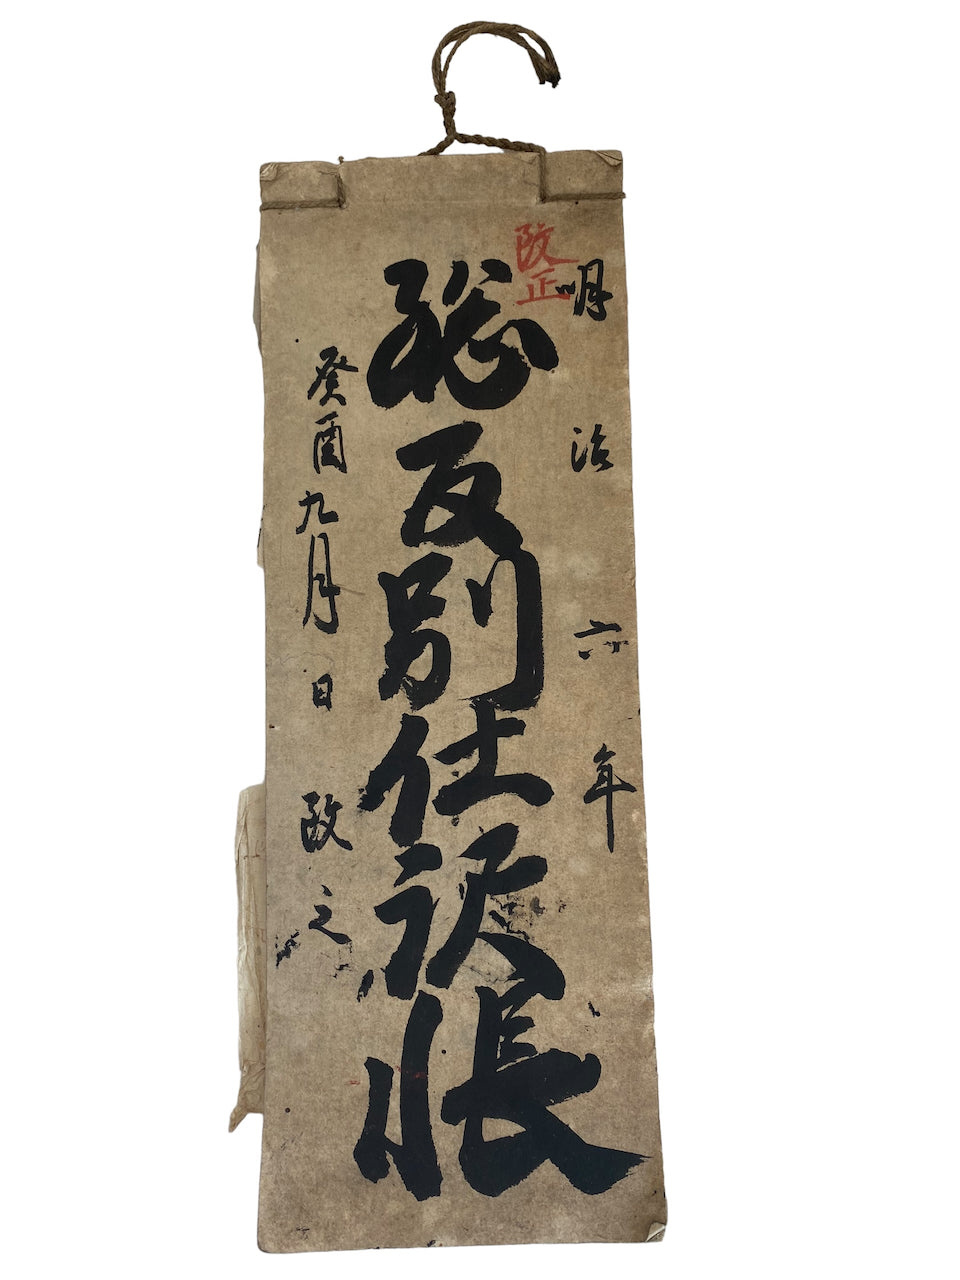 明治六年
改正
総反別仕訳帳
癸酉九月日改之